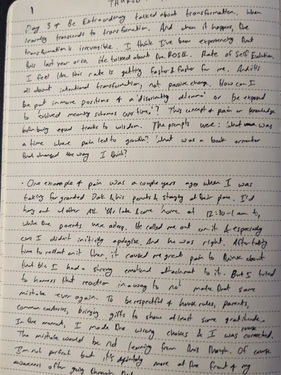 1
Pg 3 of Be Extraordinary talked about transformation. When
learning transcends to transformation. And when it happens, the
transformation is irreversible. I think I've been experiencing that
this last year or so. He talked about the ROSE. Rate of Self Evolution,
I feel like this rate is getting faster & faster for me. And it's
all about intentional transformation, not passive change. How can I
be put in more positions of a disorienting dilemma or be exposed
to evolved meaning schemas over time?
equal tracks to wisdom. The prompts were: What was
a time where pain led to growth? What was a book
that changed the way I think?
One example of pain was a couple years ago when I was
taking for granted & his parents & staying at their place. I'd
hang out w/ other We'd come home at 12:30-1 am,
while the parents were asleep. He called me out on it & especially
cuz I didn't initially apologize. And he was right. After taking
time to reflect on it then, it caused me great pain to think about
but I had a strong emotional attachment to it. But I tried
to harness that reaction in a way to not make that same
mistake ever again. To be respectful of house rules, parents,
common courtesies, bringing gifts to show at least some gratitude.
In the moment, I made the wrong choices & I was
The mistake would be not learning from this though. Of course
I'm not perfect but it's definitely more at the front of my
awareness after going through that